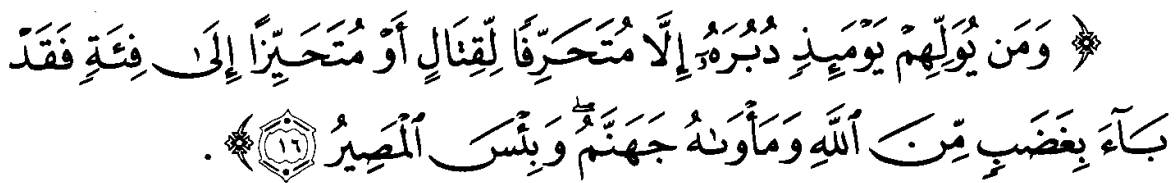 ﴿ وَمَن يُوَلِّهِمْ يَوْمَئِذٍ دُبُرَهُۥٓ إِلَّا مُتَحَرِّفًا لِّقِتَالٍ أَوْ مُتَحَيِّزًا إِلَىٰ فِئَةٍ فَقَدْ
بَآءَ بِغَضَبٍ مِّنَ ٱللَّهِ وَمَأْوَىٰهُ جَهَنَّمُ ۖ وَبِئْسَ ٱلْمَصِيرُ ١٦ ﴾ .